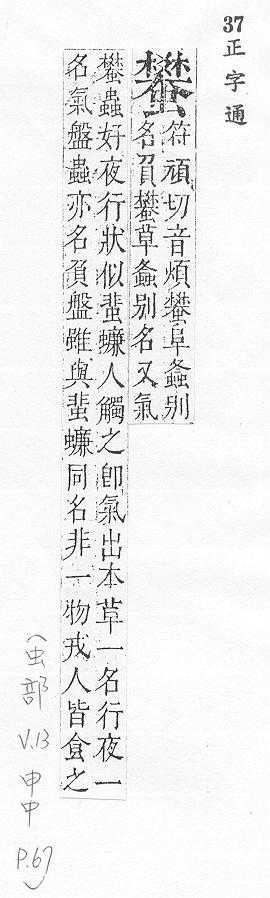 37正字通
蠜符頑切音煩蠜阜螽别
名負蠜草螽别名又氣
蠜蟲好夜行狀似蜚蠊人觸之卽氣出本草一名行夜一
名氣盤蟲亦名負盤雖與蜚蠊同名非一物戎人皆食之
(虫部 V.13 申中 P.67)